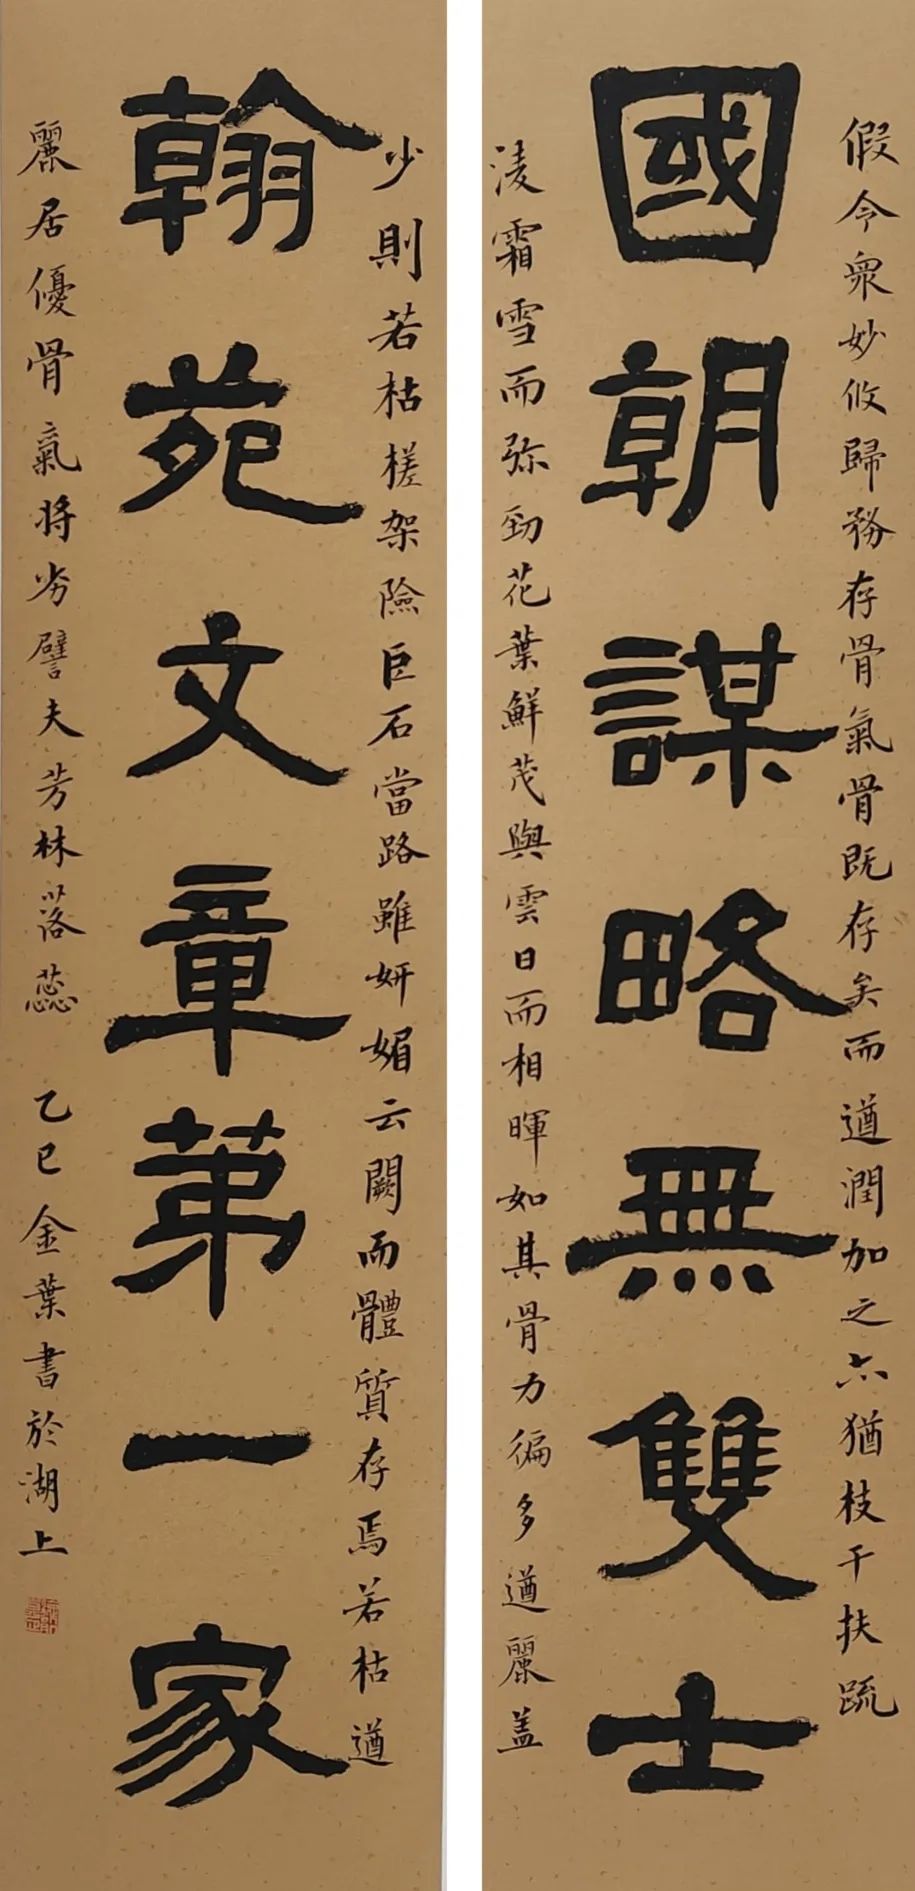 假令衆妙攸歸務存骨氣骨既存矣而遒潤加之亦猶枝干扶疏
國朝謀略無雙士
淩霜雪而弥勁花葉鮮茂與雲日而相暉如其骨力徧多遒麗盖
少則若枯槎架險巨石當路雖妍媚云闕而體質存焉若枯遒
翰苑文章苐一家
麗居優骨氣将劣譬夫芳林落蕊 乙巳金葉書於湖上